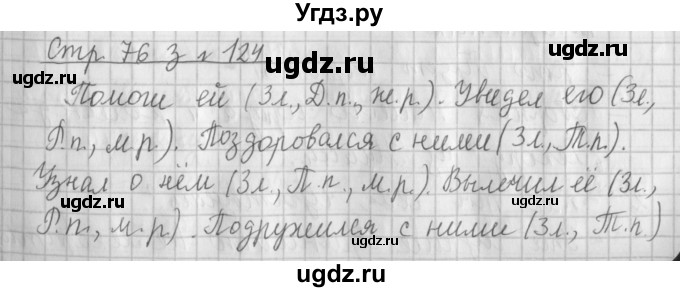 Угдз.ру
Стр. 76 З № 124
ugdz.ru
ugdz.ru
Помоги ей (3л., Д.п., ж.р.). Увидел его (3л.,
Р.п., м.р.). Поздоровался с ними (3л., Т.п.).
ugdz.ru
Узнал о нём (3л., П.п., м.р.). Вылечил её (3л.,
Р.п., м.р.). Подружился с ними (3л., Т.п.)
ugdz.ru
ugdz.ru
ugdz.ru